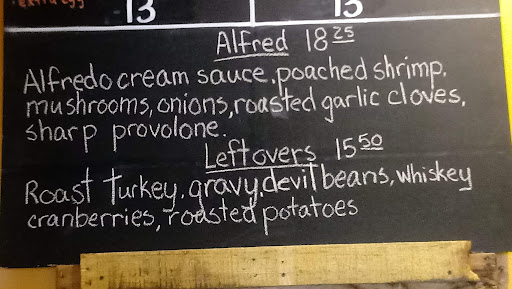 extra egg
13 15
Alfred 18 25
Alfredo cream sauce, poached shrimp,
mushrooms, onions, roasted garlic cloves,
sharp provolone.
Leftovers 15 50
Roast Turkey, gravy, devil beans, whiskey
cranberries, roasted potatoes